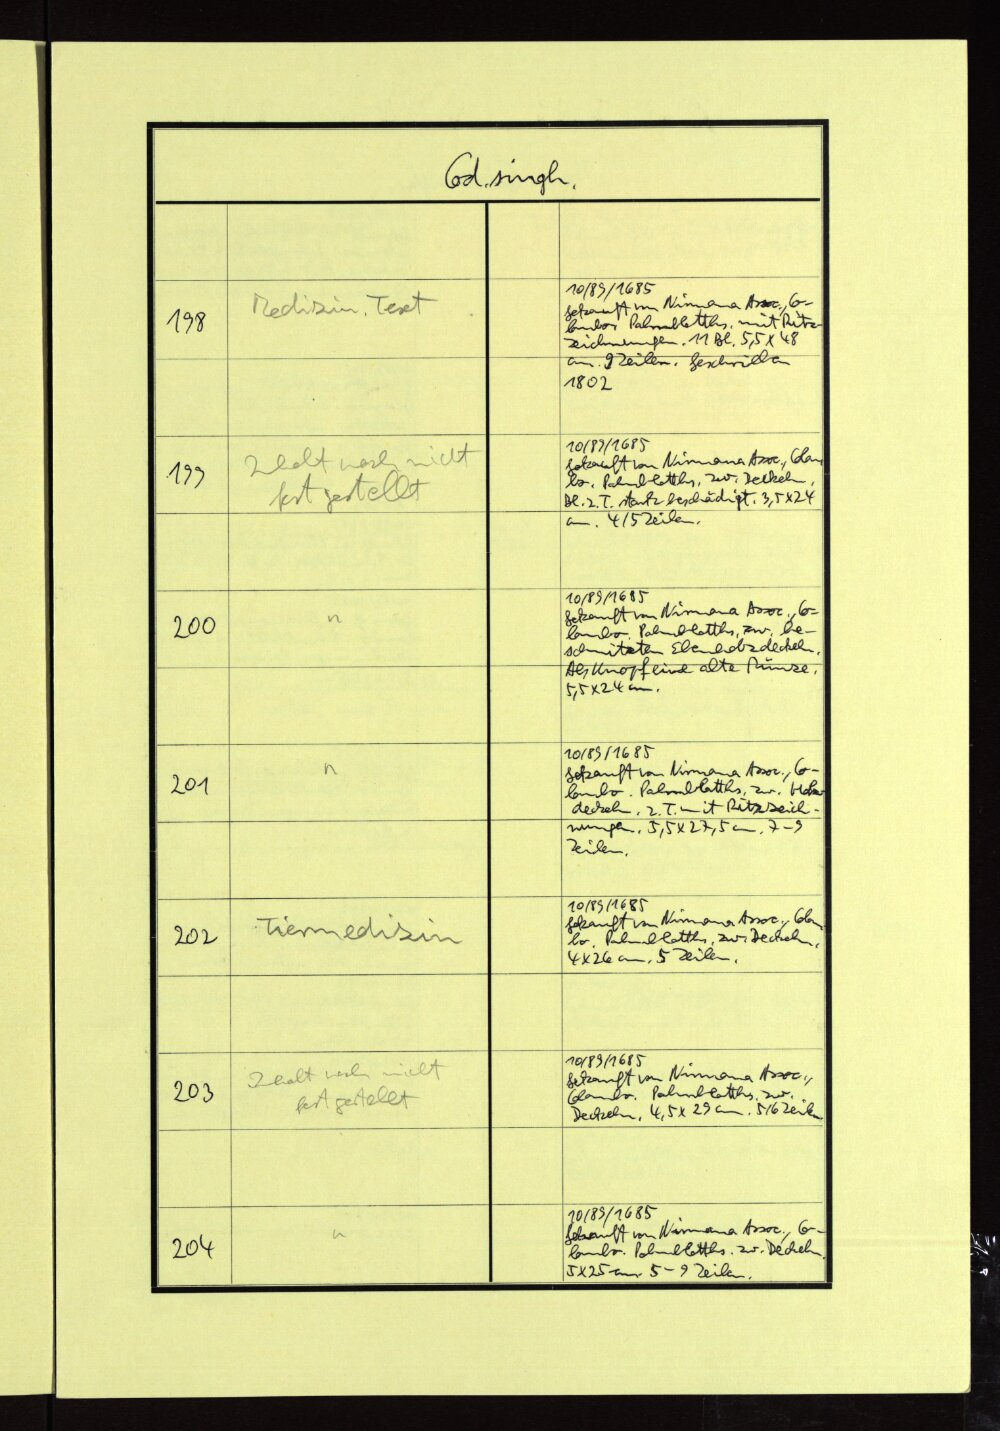 Cod. singh.
198
Medizin. Text
10/89/1685
Gekauft von Nirmana Assoc., Co-
lombo. Palmblatths. mit Ritz-
zeichnungen. 11 Bl. 5,5 x 48
cm. 9 Zeilen. Geschrieben
1802
199
Inhalt noch nicht
festgestellt
10/89/1685
Gekauft von Nirmana Assoc., Colom
bo. Palmblatths. zw. Deckeln.
Bl. z. T. stark beschädigt. 3,5x24
cm. 4/5 Zeilen.
200
"
10/89/1685
Gekauft von Nirmana Assoc., Co-
lombo. Palmblatths. zw. be-
schnitzten Ebenholzdeckeln.
Als Knopf eine alte Münze.
5,5x24 cm.
201
"
10/89/1685
Gekauft von Nirmana Assoc., Co-
lombo. Palmblatths. zw. Holz-
deckeln, z. T. mit Ritzzeich-
nungen. 5,5x27,5 cm. 7-9
Zeilen.
202
Tiermedizin
10/89/1685
Gekauft von Nirmana Assoc., Colom
bo. Palmblatths. zw. Deckeln.
4x26 cm. 5 Zeilen.
203
Inhalt noch nicht
festgestellt
10/89/1685
Gekauft von Nirmana Assoc.,
Colombo. Palmblatths. zw.
Deckeln. 4,5 x 29 cm. 5/6 Zeilen
204
"
10/89/1685
Gekauft von Nirmana Assoc., Co-
lombo. Palmblatths. zw. Deckeln.
5x25 cm. 5-9 Zeilen.